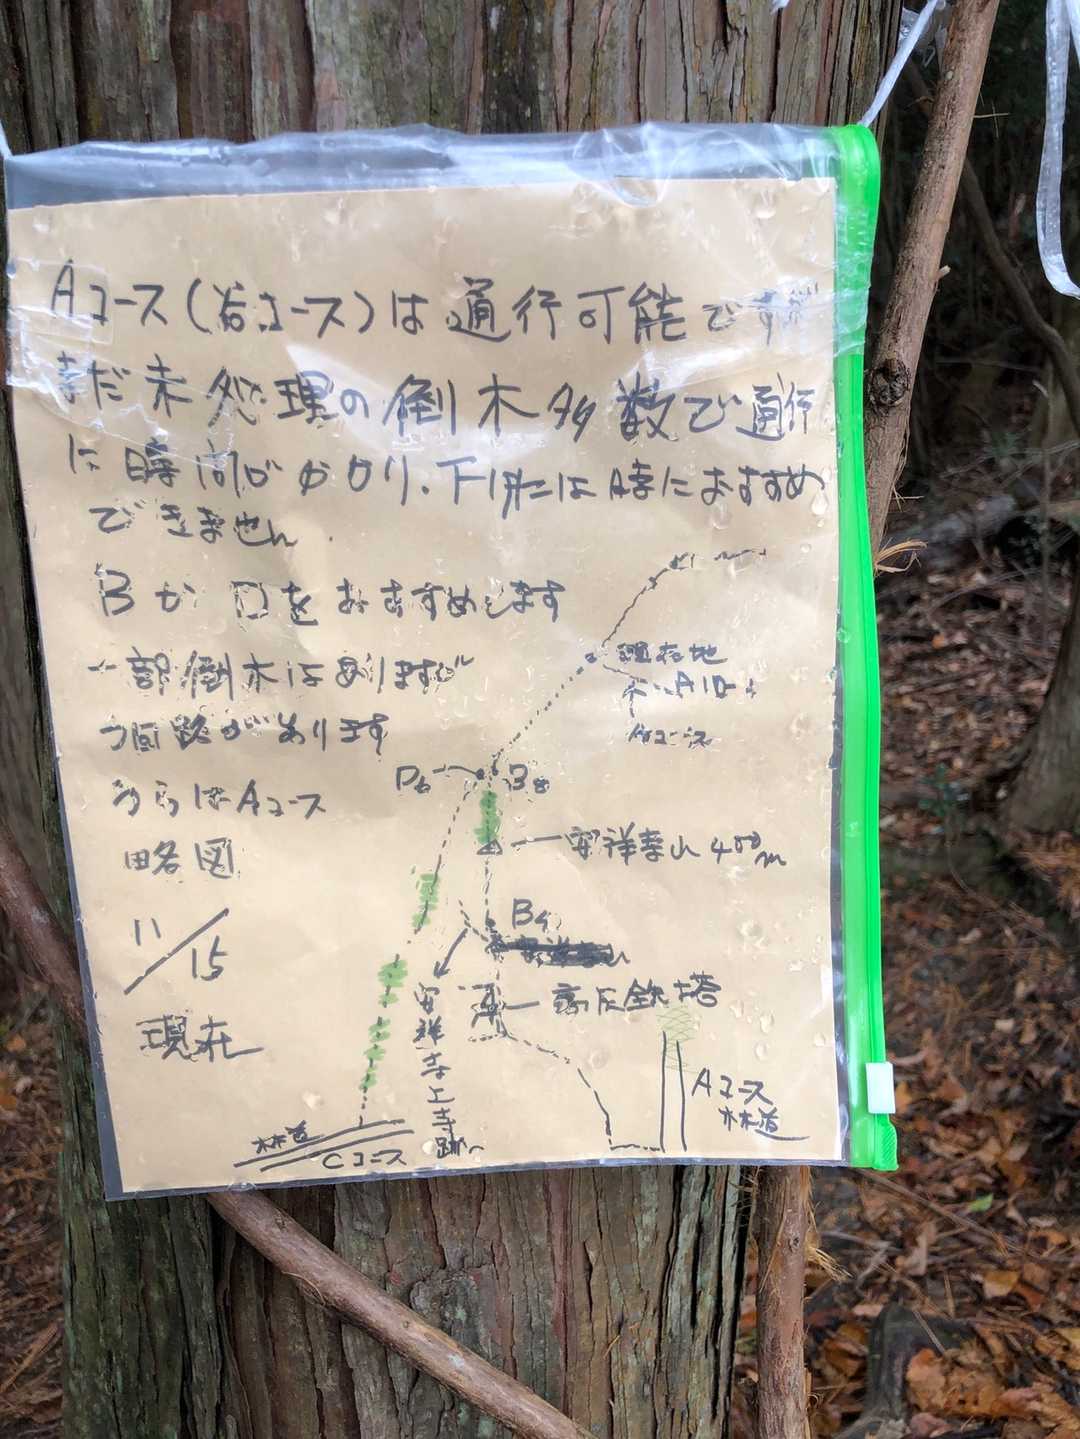 Aコース(谷コース)は通行可能ですが
まだ未処理の倒木多数で通行
に時間がかかり、下りには特におすすめ
できません.
BかDをおすすめします
一部倒木はありますが
う回路があります
うらはAコース
略図
11/15
現在
現在地
Aコース
D6
B8
安祥寺山400m
B4
高圧鉄塔
安祥寺上寺跡へ
Aコース
林道
林道
Cコース